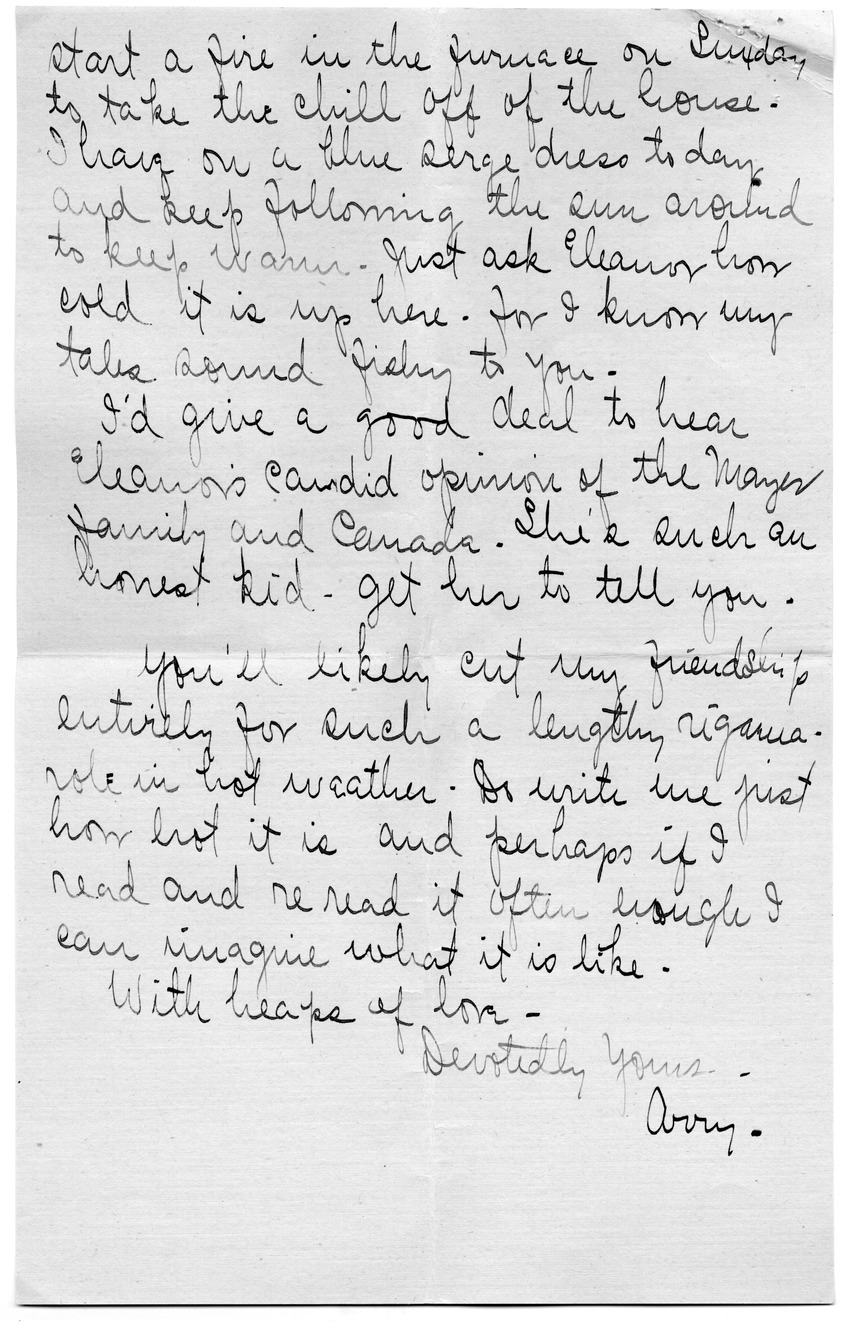 start a fire in the furnace on Sunday
to take the chill off of the house.
I have on a blue serge dress today
and keep following the sun around
to keep warm. Just ask Eleanor how
cold it is up here. For I know my
tales sound fishy to you.
I'd give a good deal to hear
Eleanor's candid opinion of the Mayer
family and Canada. She's such an
honest kid - get her to tell you.
You'll likely cut my friendship
entirely for such a lengthy rigama-
role in hot weather. Do write me just
how hot it is and perhaps if I
read and re read it often enough I
can imagine what it is like.
With heaps of love -
Devotedly Yours -